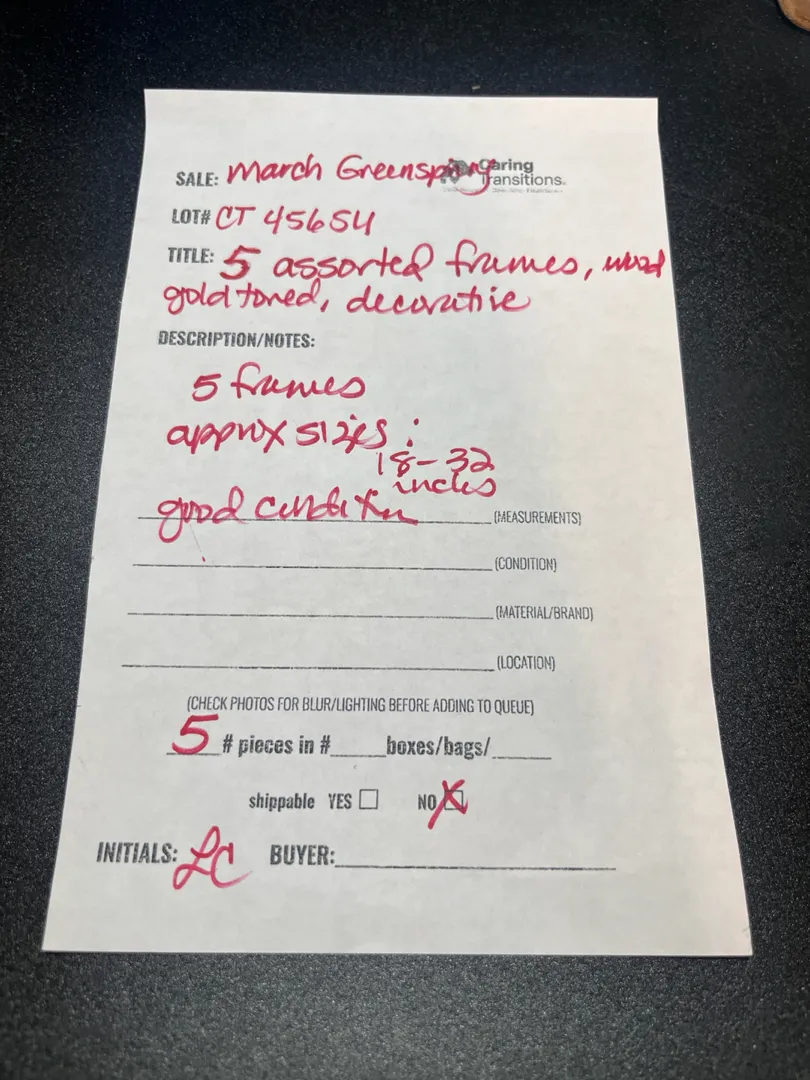 SALE: March Greenspring
Caring
Transitions.
LOT# CT 45654
TITLE: 5 assorted frames, wood
gold toned, decorative
DESCRIPTION/NOTES:
5 frames
approx sizes :
18-32
inches
good condition (MEASUREMENTS)
(CONDITION)
(MATERIAL/BRAND)
(LOCATION)
(CHECK PHOTOS FOR BLUR/LIGHTING BEFORE ADDING TO QUEUE)
5 # pieces in #____boxes/bags/____
shippable YES ☐ NO ☒
INITIALS: LC BUYER:____